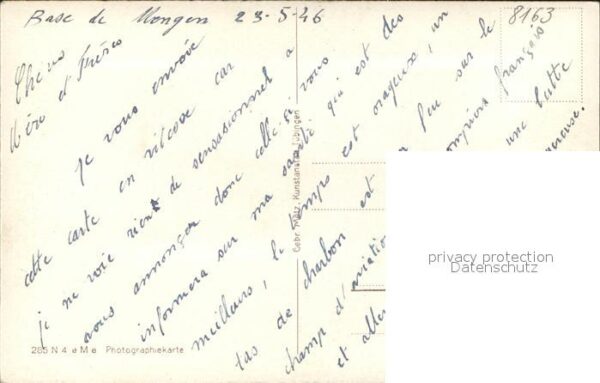 Base de Mengen 23-5-46
8163
Chers
Mère et Frères
Je vous envoie
cette carte en vitesse car
je ne vois rien de sensasionnel a
vous annoncer donc celle si vous
informera sur ma santé qui est des
meilleurs, le temps est orageux, un
tas de charbon est feu sur le
champ d'aviation pompiers français
et aller une lutte
Gebr. Metz, Kunstanstalt, Tübingen
265 N 4 e M e Photographiekarte
privacy protection
Datenschutz